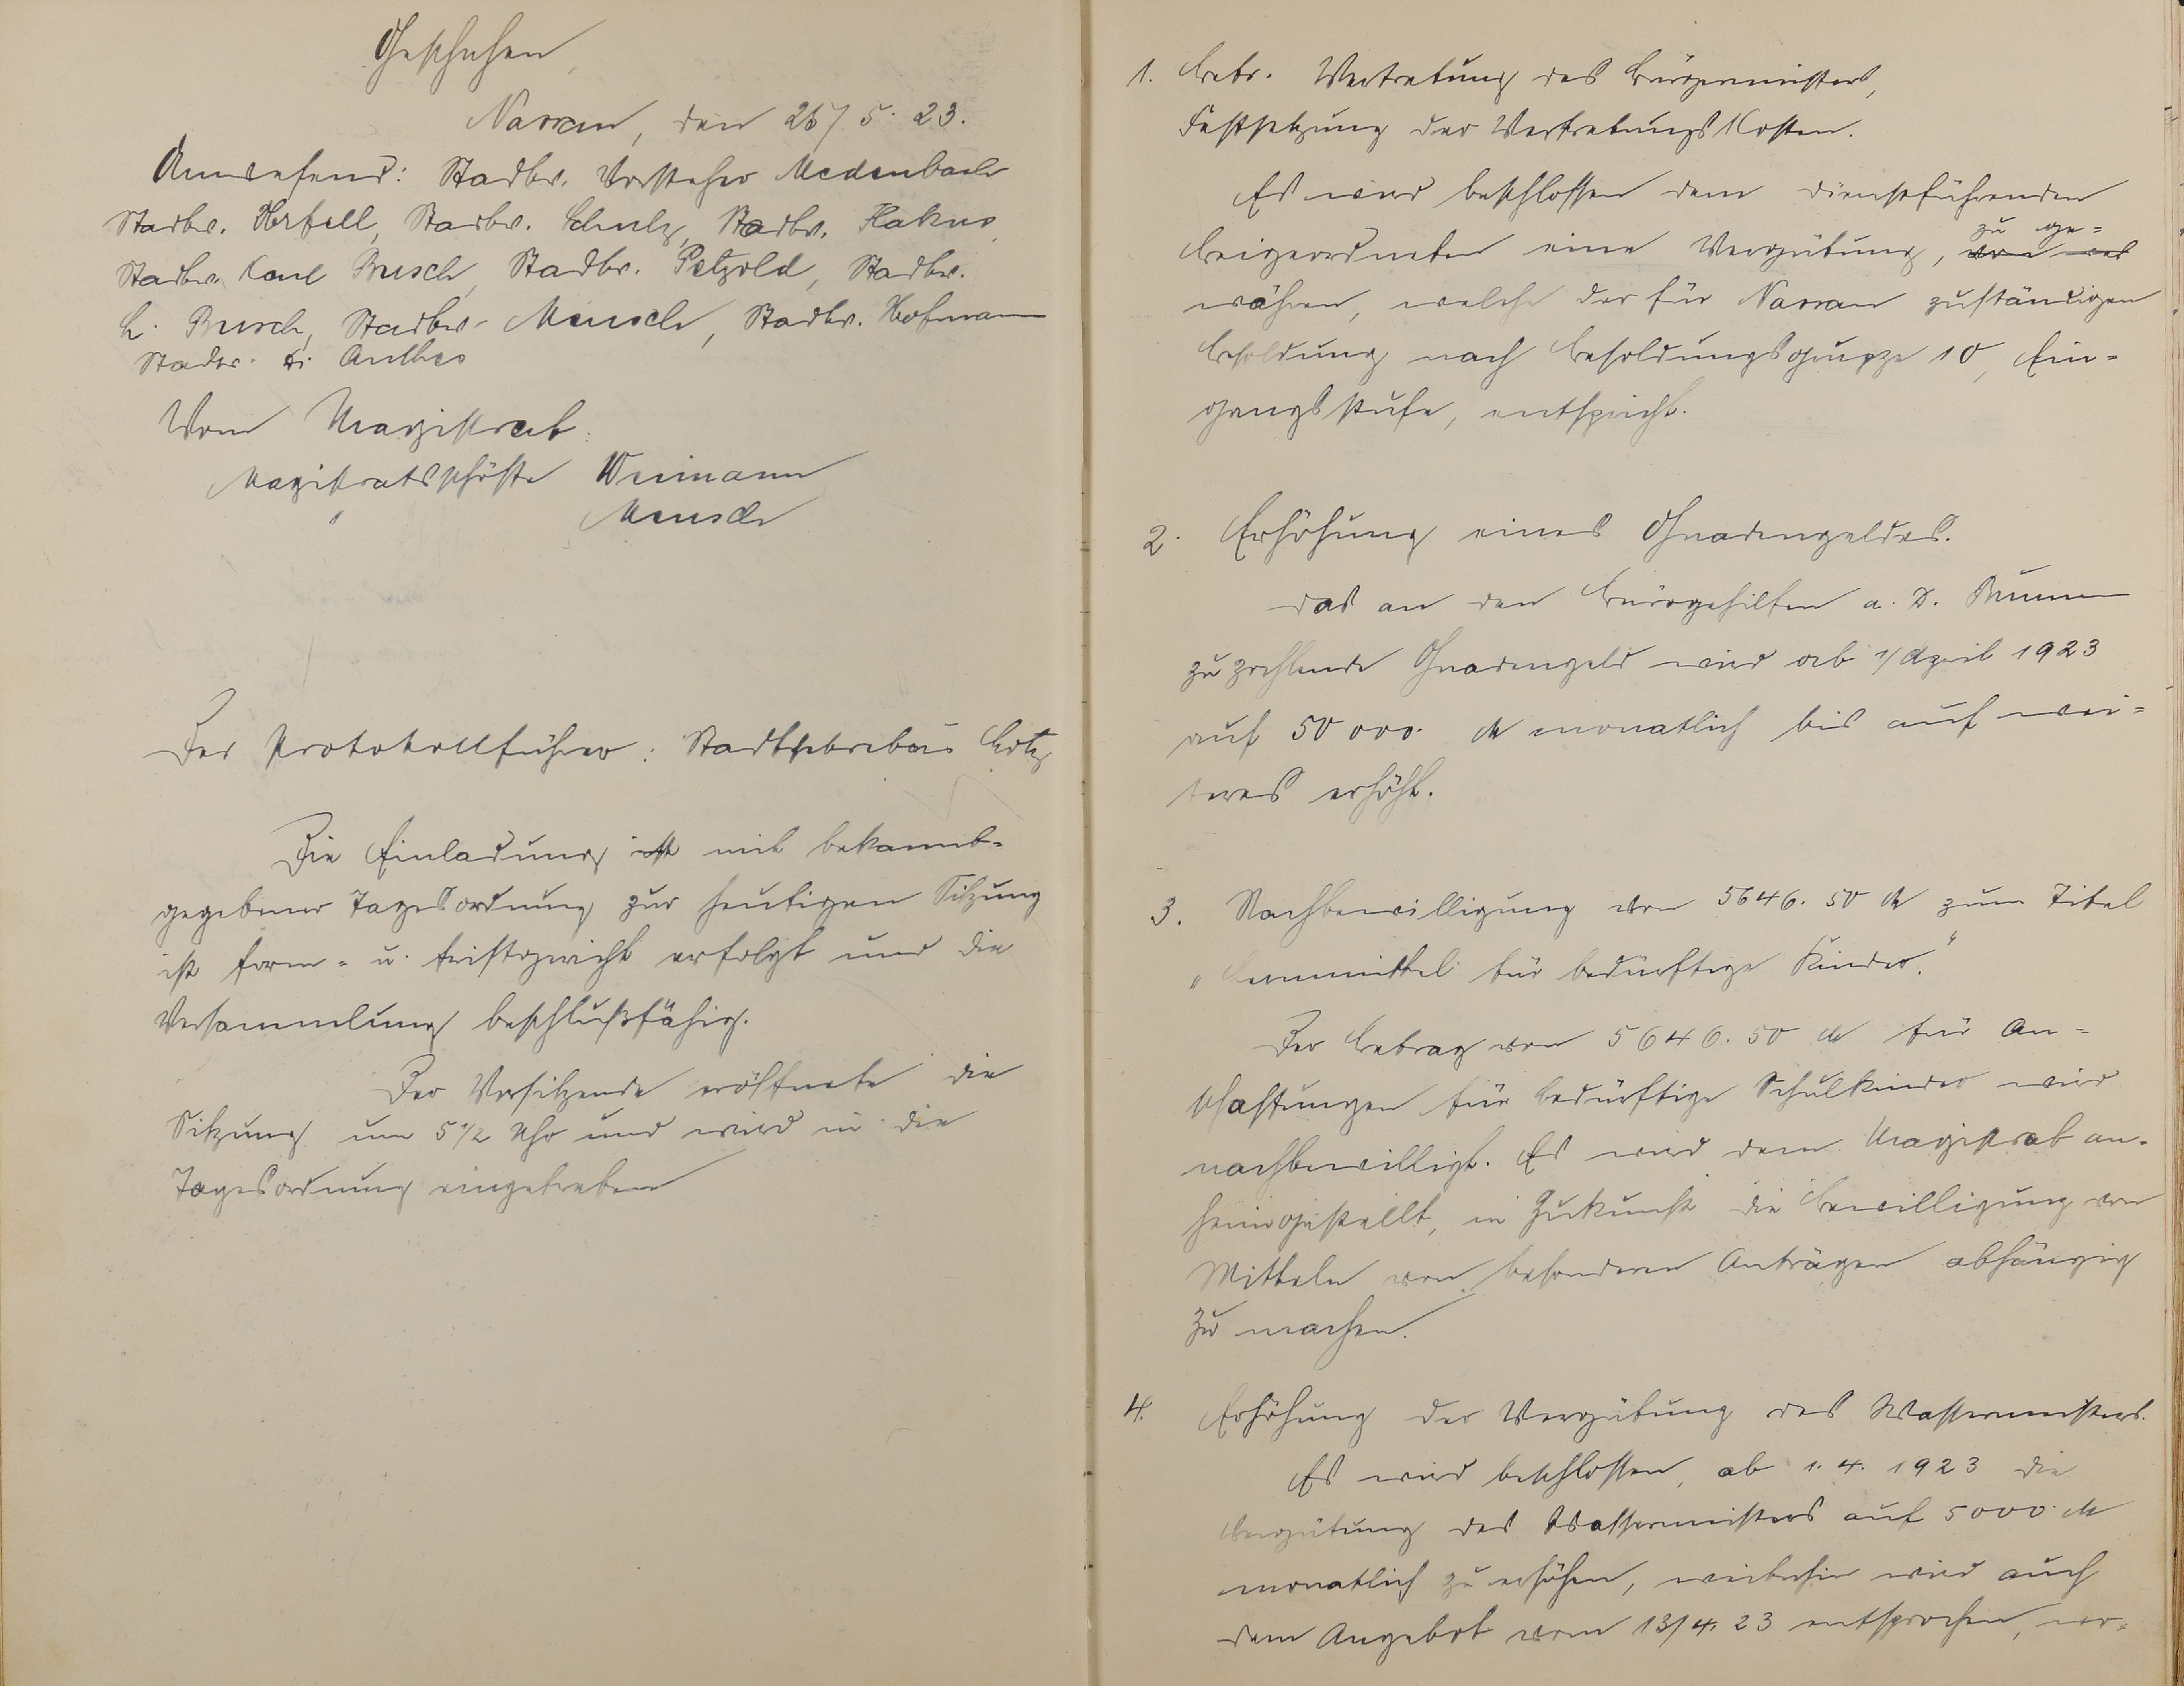 Geschehen,
Nassau, den 26/5. 23.
Anwesend: Stadtv. Vorsteher Medenbach
Stadtv. Schulz, Stadtv.
Stadtv. Karl Busch, Stadtv. Petzold, Stadtv.
L. Busch, Stadtv. Meusch, Stadtv. Hofmann
Stadtv. Anthes
Vom Magistrat:
Magistratsschöffe Weimann
" Meusch
Der Protokollführer: Stadtsekretär Lotz
Die Einladung ist mit bekannt-
gegebener Tagesordnung zur heutigen Sitzung
ist form- u. fristgerecht erfolgt und die
Versammlung beschlußfähig.
Der Vorsitzende eröffnete die
Sitzung um 5 1/2 Uhr und wird in die
Tagesordnung eingetreten
1. Betr. Vertretung des Bürgermeisters,
Festsetzung der Vertretungskosten.
Es wird beschlossen dem dienstführenden
Beigeordneten eine Vergütung, zu ge-
währen, welche der für Nassau zuständigen
Besoldung nach Besoldungsgruppe 10, Ein-
gangsstufe, entspricht.
2. Erhöhung eines Gnadengeldes.
Das an den Bürogehilfen a. D.
zu zahlende Gnadengeld wird ab 1/April 1923
auf 50 000 M monatlich bis auf wei-
teres erhöht.
3. Nachbewilligung von 5646.50 M zum Titel
„Lernmittel für bedürftige Kinder."
Der Betrag von 5646.50 M für An-
schaffungen für bedürftige Schulkinder wird
nachbewilligt. Es wird dem Magistrat an-
heimgestellt, in Zukunft die Bewilligung von
Mitteln von besonderen Anträgen abhängig
zu machen.
4. Erhöhung der Vergütung des Wassermeisters.
Es wird beschlossen, ab 1.4. 1923 die
Vergütung des Wassermeisters auf 5000 M
monatlich zu erhöhen, weiterhin wird auch
dem Angebot vom 13/4.23 entsprochen, wo-